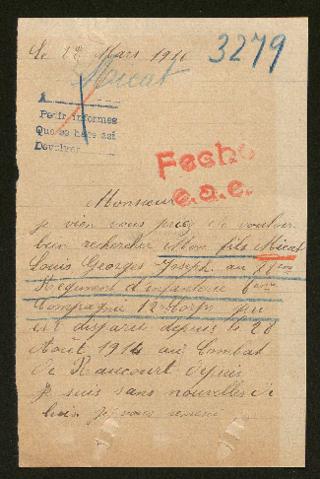 le 22 Mars 1916
3279
Micat
A
Pedir informes
Que se hace así
Devolver
Fecho
c.a.c.
Monsieur
je vien vous prier de vouloir
bien rechercher Mon fils Micat
Louis Georges Joseph au 78 eme
Régiment d'infanterie 6 eme
Compagnie 12 Corps qui
est disparu depuis le 28
Août 1914 au Combat
de Raucourt depuis
je suis sans nouvelles de
lui je vous